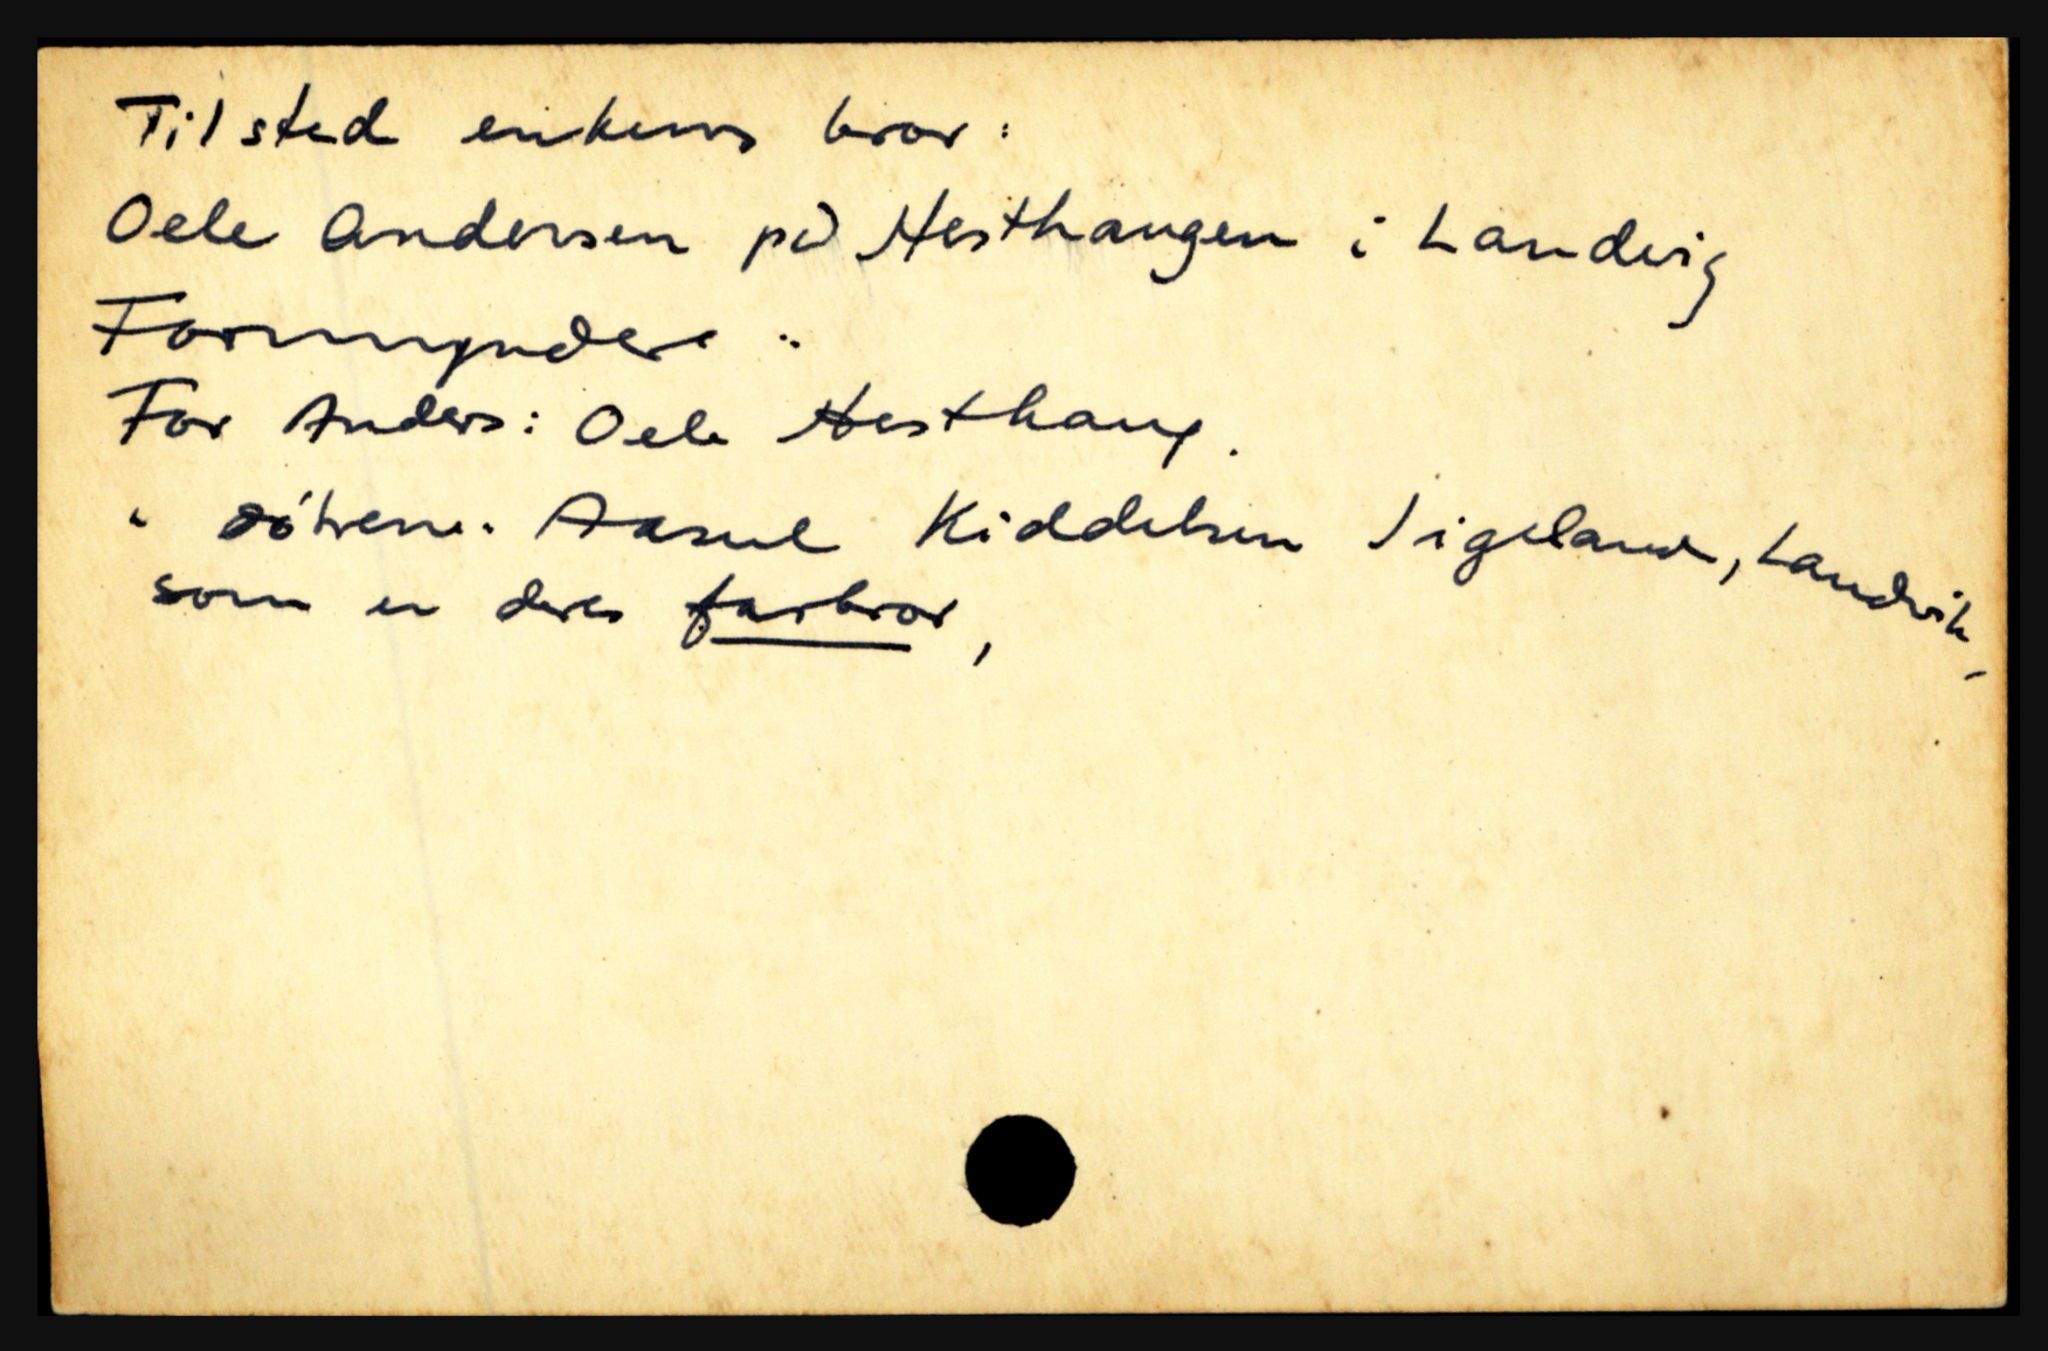 Til sted enkens bror:
Oele Andersen på Hesthaugen i Landvig
Formyndere:
For Anders: Oele Hesthaug.
" døtrene. Aasul Kiddelsen Sigeland, Landvik,
som er deres farbror,